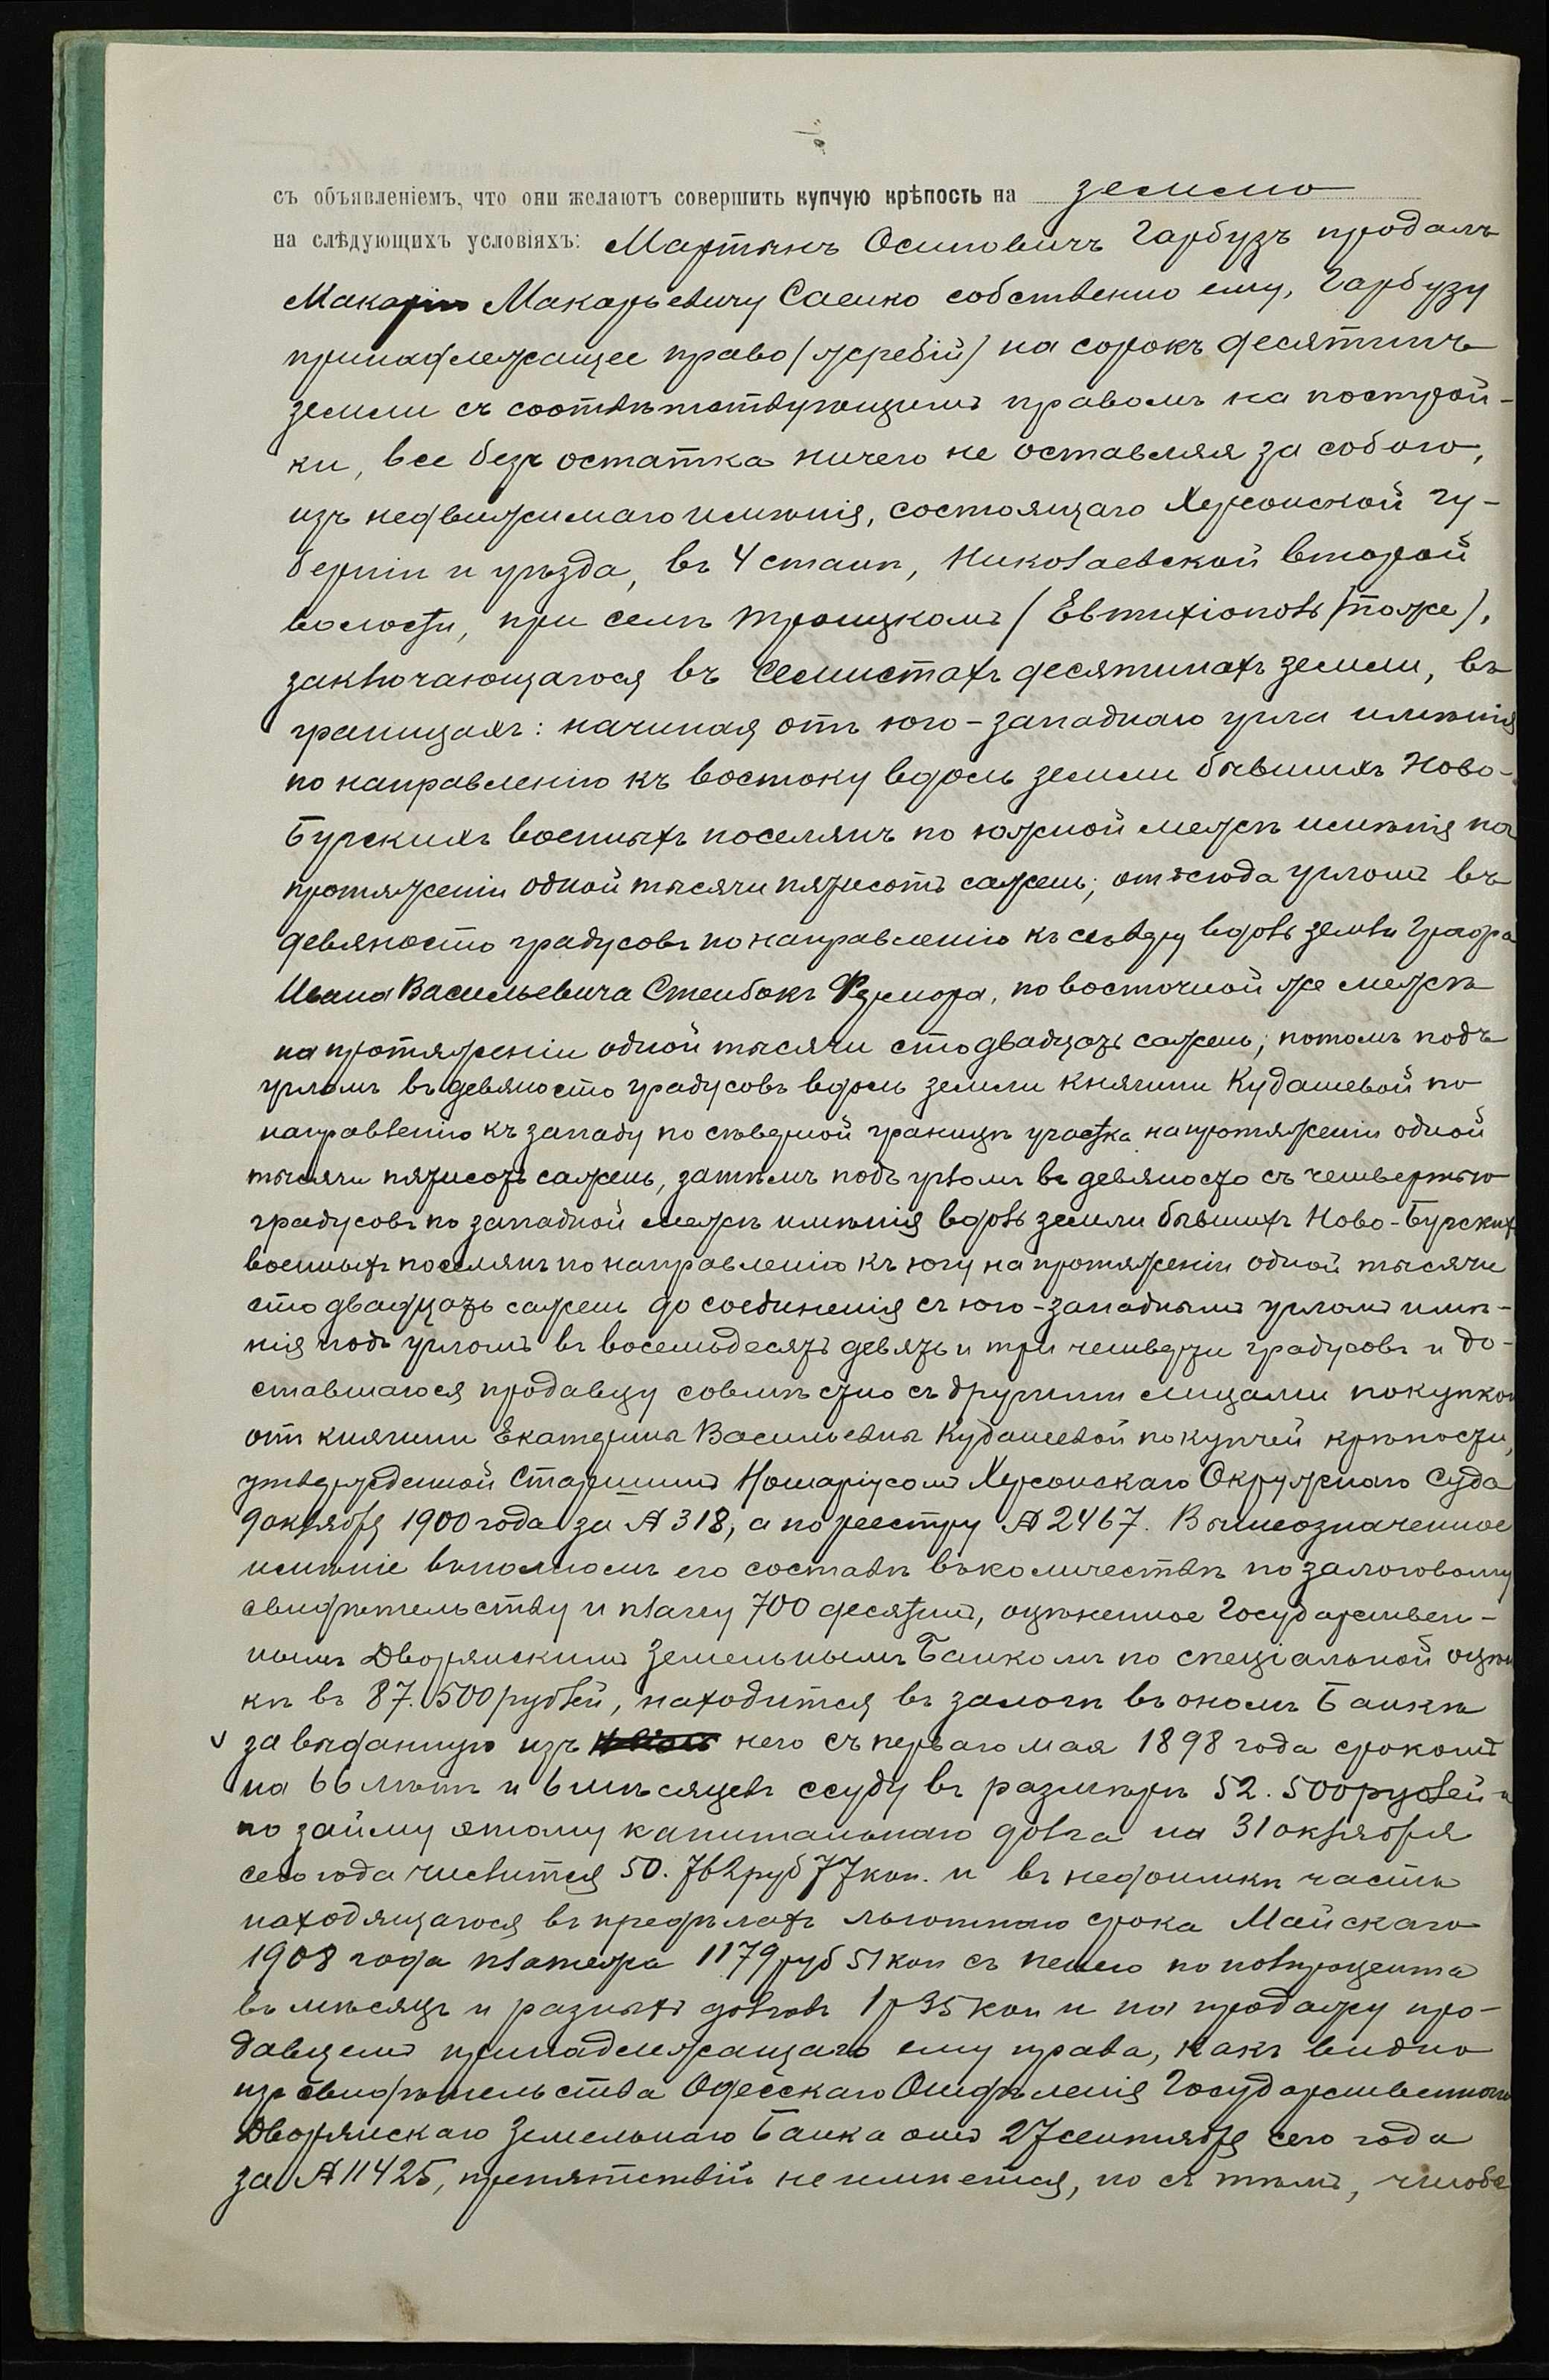 съ объявленіемъ, что они желаютъ совершить купчую крѣпость на землю
на слѣдующихъ условіяхъ: Мартынъ Осиповичъ Гарбузъ продалъ
Макарію Макарьевичу Саенко собственно ему, Гарбузу
принадлежащее право (жребій) на сорокъ десятинъ
земли съ соотвѣтствующимъ правомъ на построй-
ки, все безъ остатка ничего не оставляя за собою,
изъ недвижимаго имѣнія, состоящаго Херсонской гу-
берніи и уѣзда, въ 4 станѣ, Николаевской второй
волости, при селѣ Троицкомъ (Евтихіополь тоже),
заключающагося въ семистахъ десятинахъ земли, въ
границахъ: начиная отъ юго-западнаго угла имѣнія
по направленію къ востоку вдоль земли бывшихъ Ново-
Бугскихъ военныхъ поселянъ по южной межѣ имѣнія на
протяженіи одной тысячи пятисотъ сажень; отсюда угломъ въ
девяносто градусовъ по направленію къ сѣверу вдоль земли Графа
Ивана Васильевича Стенбокъ Фермора, по восточной же межѣ
на протяженіи одной тысячи сто двадцать сажень; потомъ подъ
угломъ въ девяносто градусовъ вдоль земли княгини Кудашевой по
направленію къ западу по сѣверной границѣ участка на протяженіи одной
тысячи пятисотъ сажень, затѣмъ подъ угломъ въ девяносто съ четвертью
градусовъ по западной межѣ имѣнія вдоль земли бывшихъ Ново-Бугскихъ
военныхъ поселянъ по направленію къ югу на протяженіи одной тысячи
сто двадцать сажень до соединенія съ юго-западнымъ угломъ имѣ-
нія подъ угломъ въ восемьдесятъ девять и три четверти градусовъ и до-
ставшагося продавцу совмѣстно съ другими лицами покупкою
отъ княгини Екатерины Васильевны Кудашевой по купчей крѣпости,
утвержденной Старшимъ Нотаріусомъ Херсонскаго Окружнаго Суда
9 октября 1900 года за № 318, а по реестру № 2467. Вышеозначенное
имѣніе въ полномъ его составѣ въ количествѣ по залоговому
свидѣтельству и плану 700 десятинъ, оцѣненное Государствен-
нымъ Дворянскимъ Земельнымъ Банкомъ по спеціальной оцѣн
кѣ въ 87.500 рублей, находится въ залогѣ въ ономъ Банкѣ
за выданную изъ него съ перваго мая 1898 года срокомъ
на 66 лѣтъ и 6 мѣсяцевъ ссуду въ размѣрѣ 52.500 рублей и
по займу этому капитальнаго долга на 31 октября
сего года числится 50.762 руб 77 коп. и въ недоимкѣ часть
находящагося въ предѣлахъ льготнаго срока Майскаго
1908 года платежа 1179 руб 51 коп съ пенею по полпроцента
въ мѣсяцъ и разныхъ долговъ 1 р 35 коп и на продажу про-
давцемъ принадлежащаго ему права, какъ видно
изъ свидѣтельства Одесскаго Отдѣленія Государственнаго
Дворянскаго Земельнаго Банка отъ 27 сентября сего года
за № 11425, препятствій не имѣется, но съ тѣмъ, чтобы